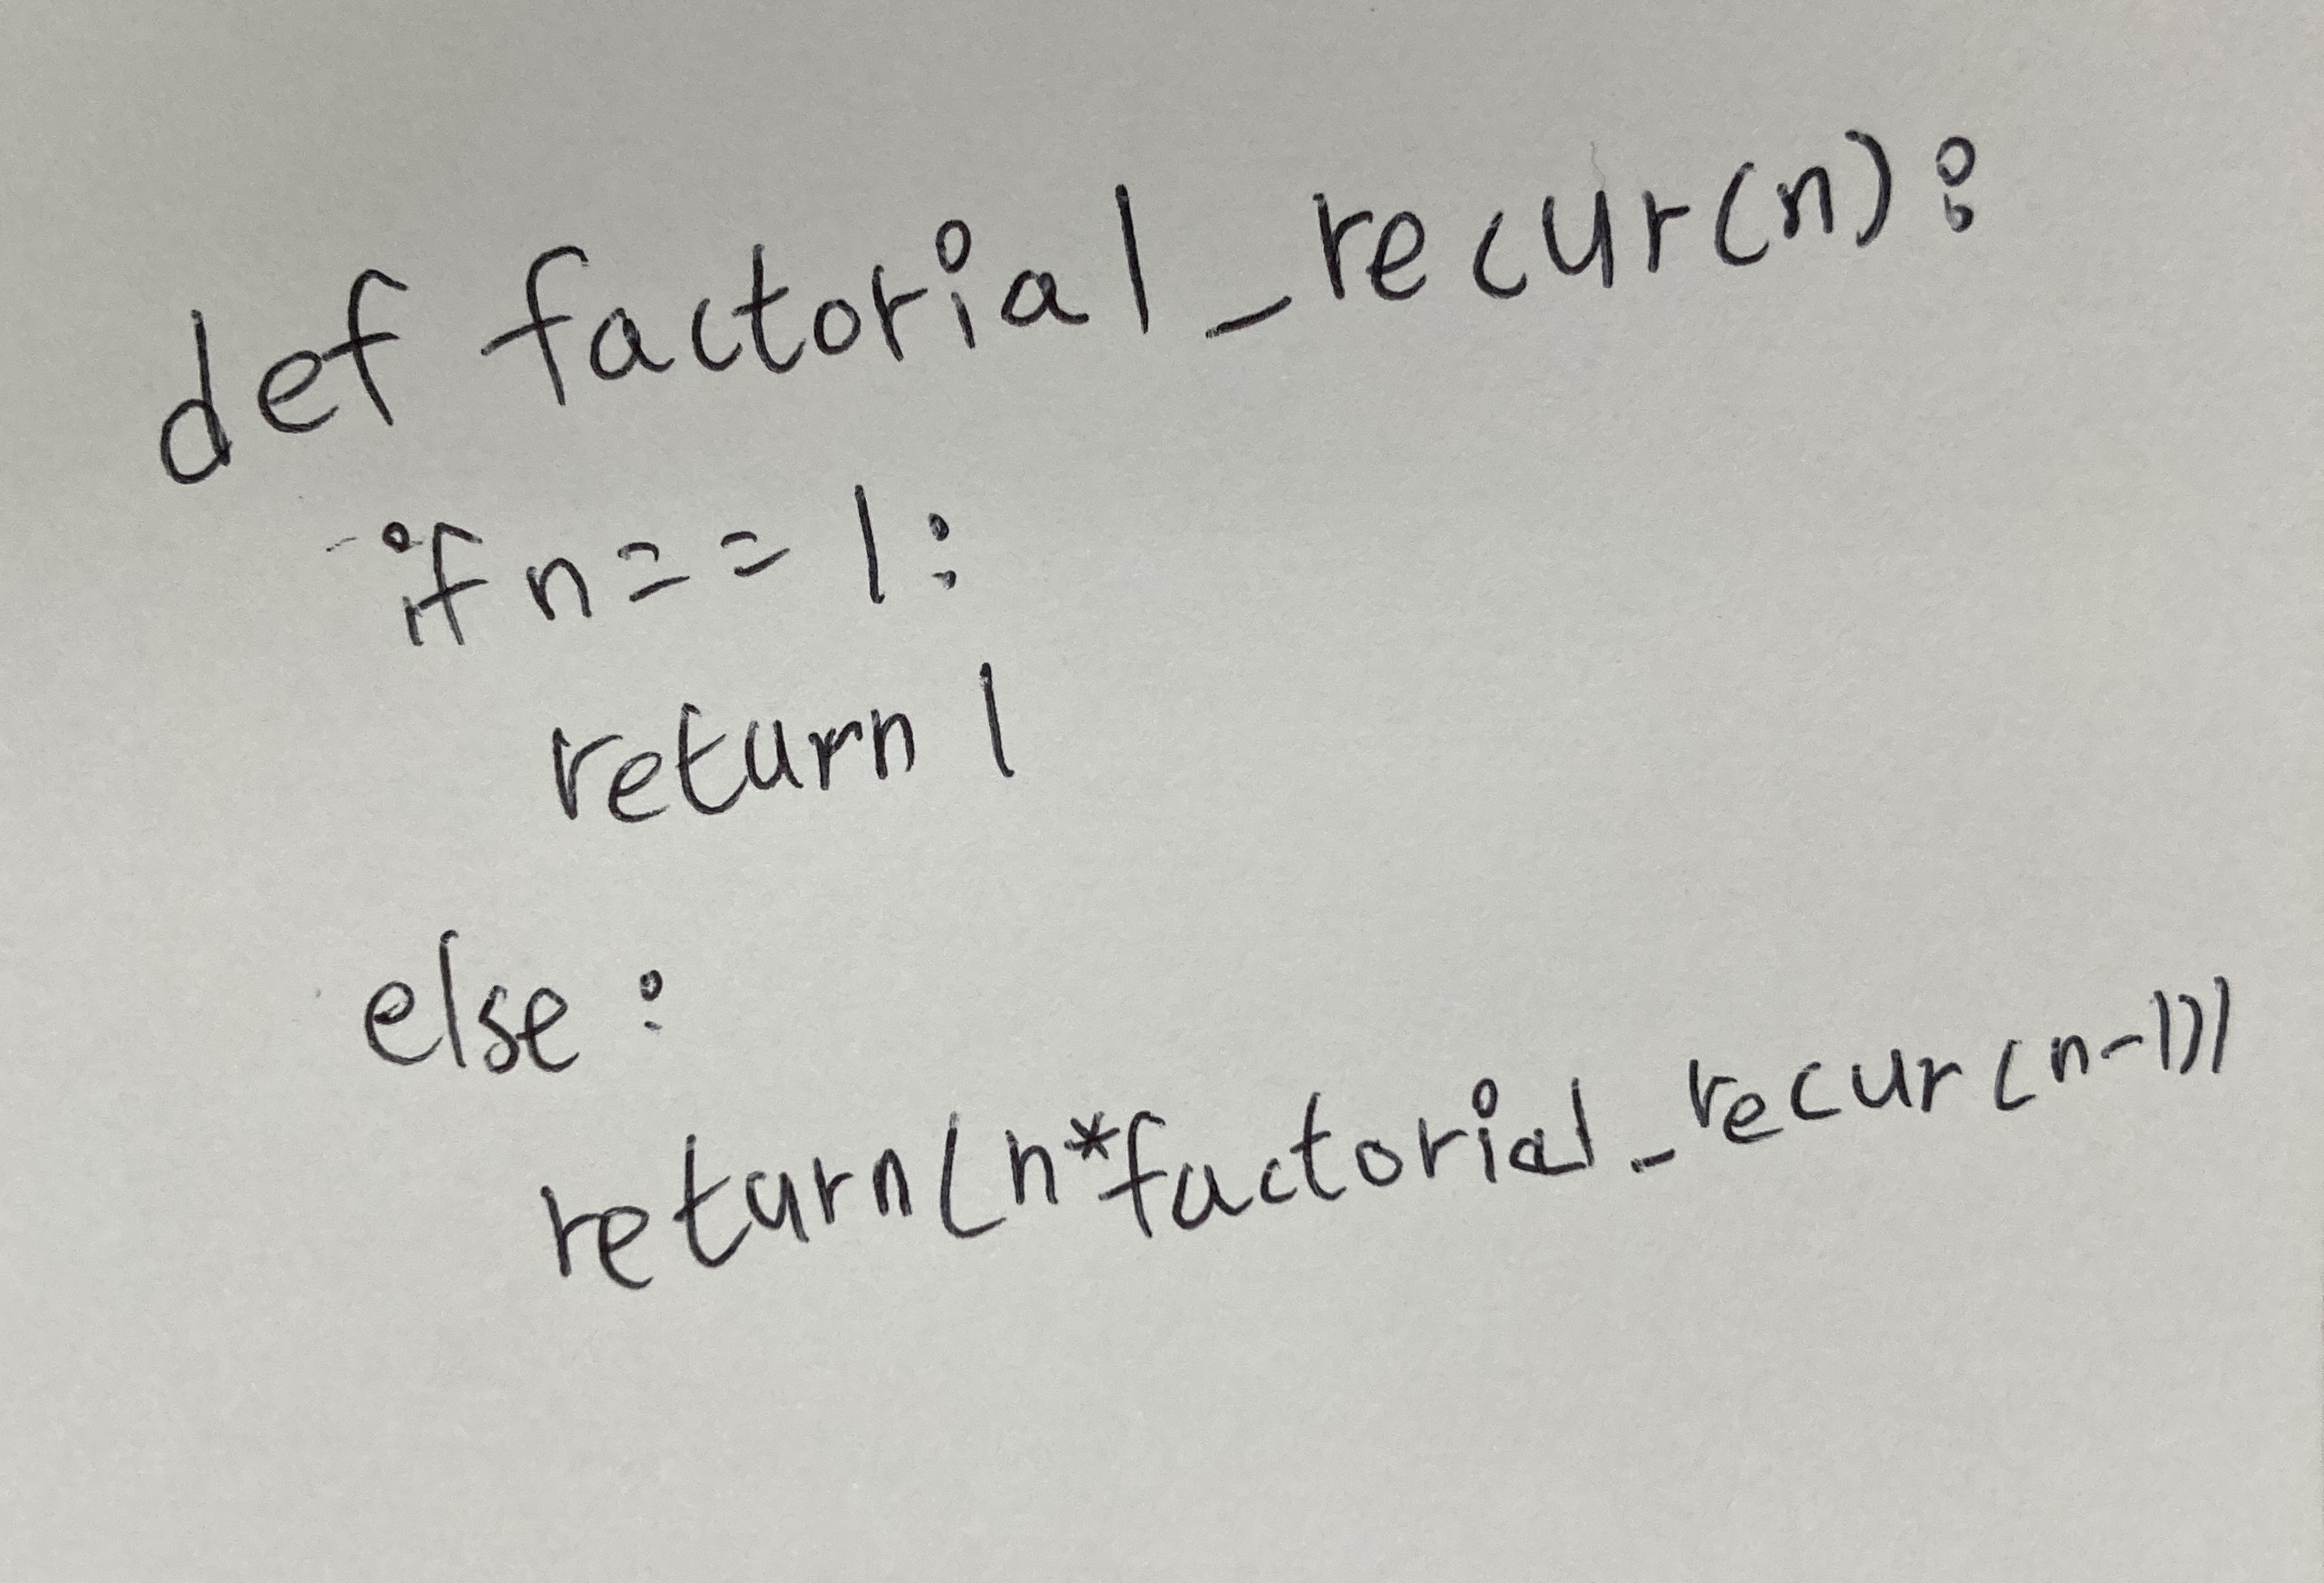 def factorial_recur(n):
if n==1:
return 1
else:
return(n*factorial_recur(n-1))